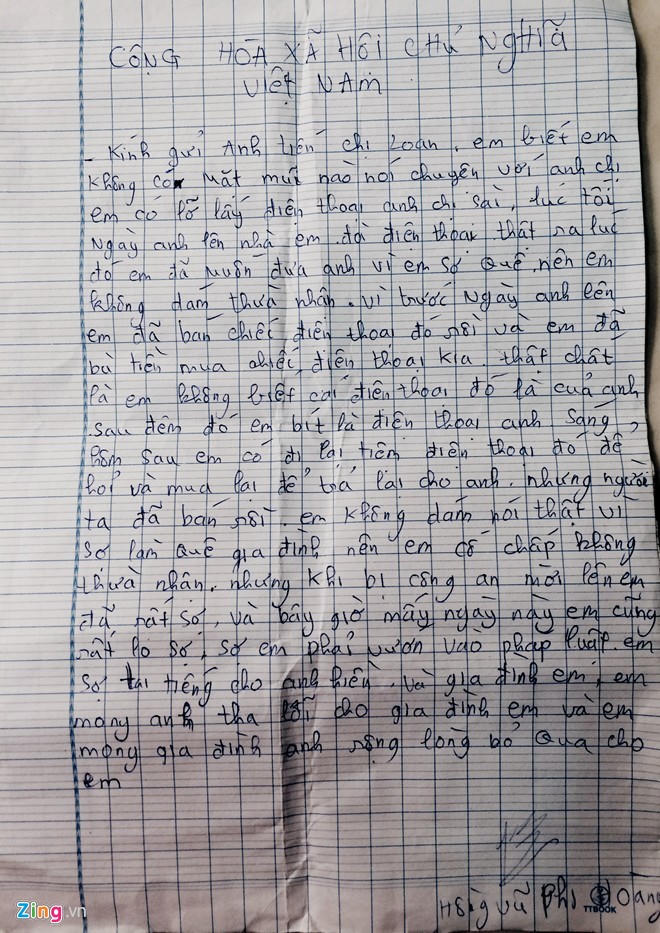 CỘNG HÒA XÃ HỘI CHỦ NGHĨA
VIỆT NAM
- Kính gửi Anh tiến chị Loan. em biết em
không có mặt mũi nào nói chuyện với anh chị
em có lỡ lấy điện thoại anh chị sài, lúc tối
Ngày anh lên nhà em đò điện thoại thật ra lúc
đó em đã muốn đưa anh vì em sợ quê nên em
không dám thừa nhận. vì trước Ngày anh lên
em đã bán chiếc điện thoại đó rồi và em đã
bù tiền mua chiếc điện thoại kia. thật chất
là em không biết cái điện thoại đó là của anh
sau đêm đó em bít là điện thoại anh sáng
hôm sau em có đi lại tiệm điện thoại đó để
hỏi và mua lại để trả lại cho anh. nhưng người
ta đã bán rồi. em không dám nói thật vì
sợ làm quê gia đình nên em cố chấp không
thừa nhận. nhưng khi bị công an mời lên em
đã rất sợ, và bây giờ mấy ngày này em cũng
rất lo sợ, sợ em phải vươn vào pháp luật. em
sợ tai tiếng cho anh hiền. và gia đình em, em
mong anh tha lỗi cho gia đình em và em
mong gia đình anh rộng lòng bỏ qua cho
em
vũ Phi
TTBOOK
Zing.vn